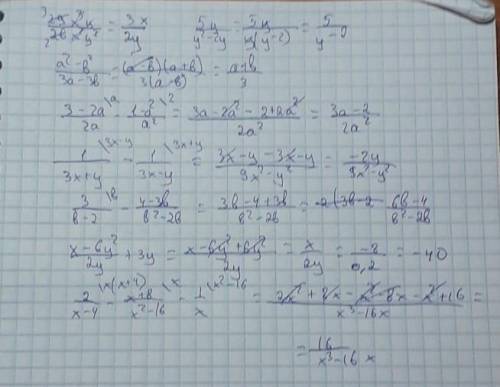 39x³y / 26x²y² = 3x / 2y    5y / y²-2y = 5y / y(y-2) = 5 / y-2
a²-b² / 3a-3b = (a-b)(a+b) / 3(a-b) = a+b / 3
3-2a\a / 2a - 1-a²\2 / a² = 3a-2a²-2+2a² / 2a² = 3a-2 / 2a²
1\3x-y / 3x+y - 1\3x+y / 3x-y = 3x-y-3x-y / 9x²-y² = -2y / 9x²-y²
3\b / b-2 - 4-3b / b²-2b = 3b-4+3b / b²-2b = 6b-4 / b²-2b
x-6y² / 2y + 3y = x-6y²+6y² / 2y = x / 2y = -8 / 0,2 = -40
2\x(x+4) / x-4 - x+8\x / x²-16 - 1\x²-16 / x = 2x²+8x-x²-8x-x²+16 / x³-16x =
= 16 / x³-16x